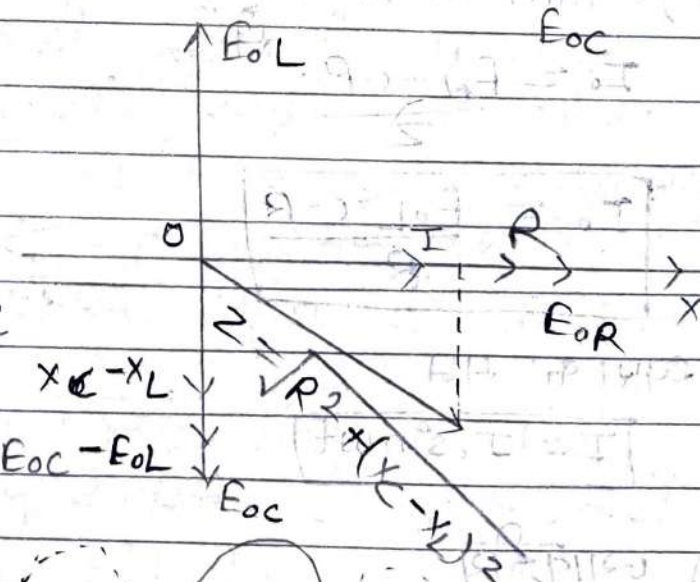 E₀L
E₀C
O
I
R
X
E₀R
X_C - X_L
E₀C - E₀L
E₀C
Z = √R² + (X_C - X_L)²